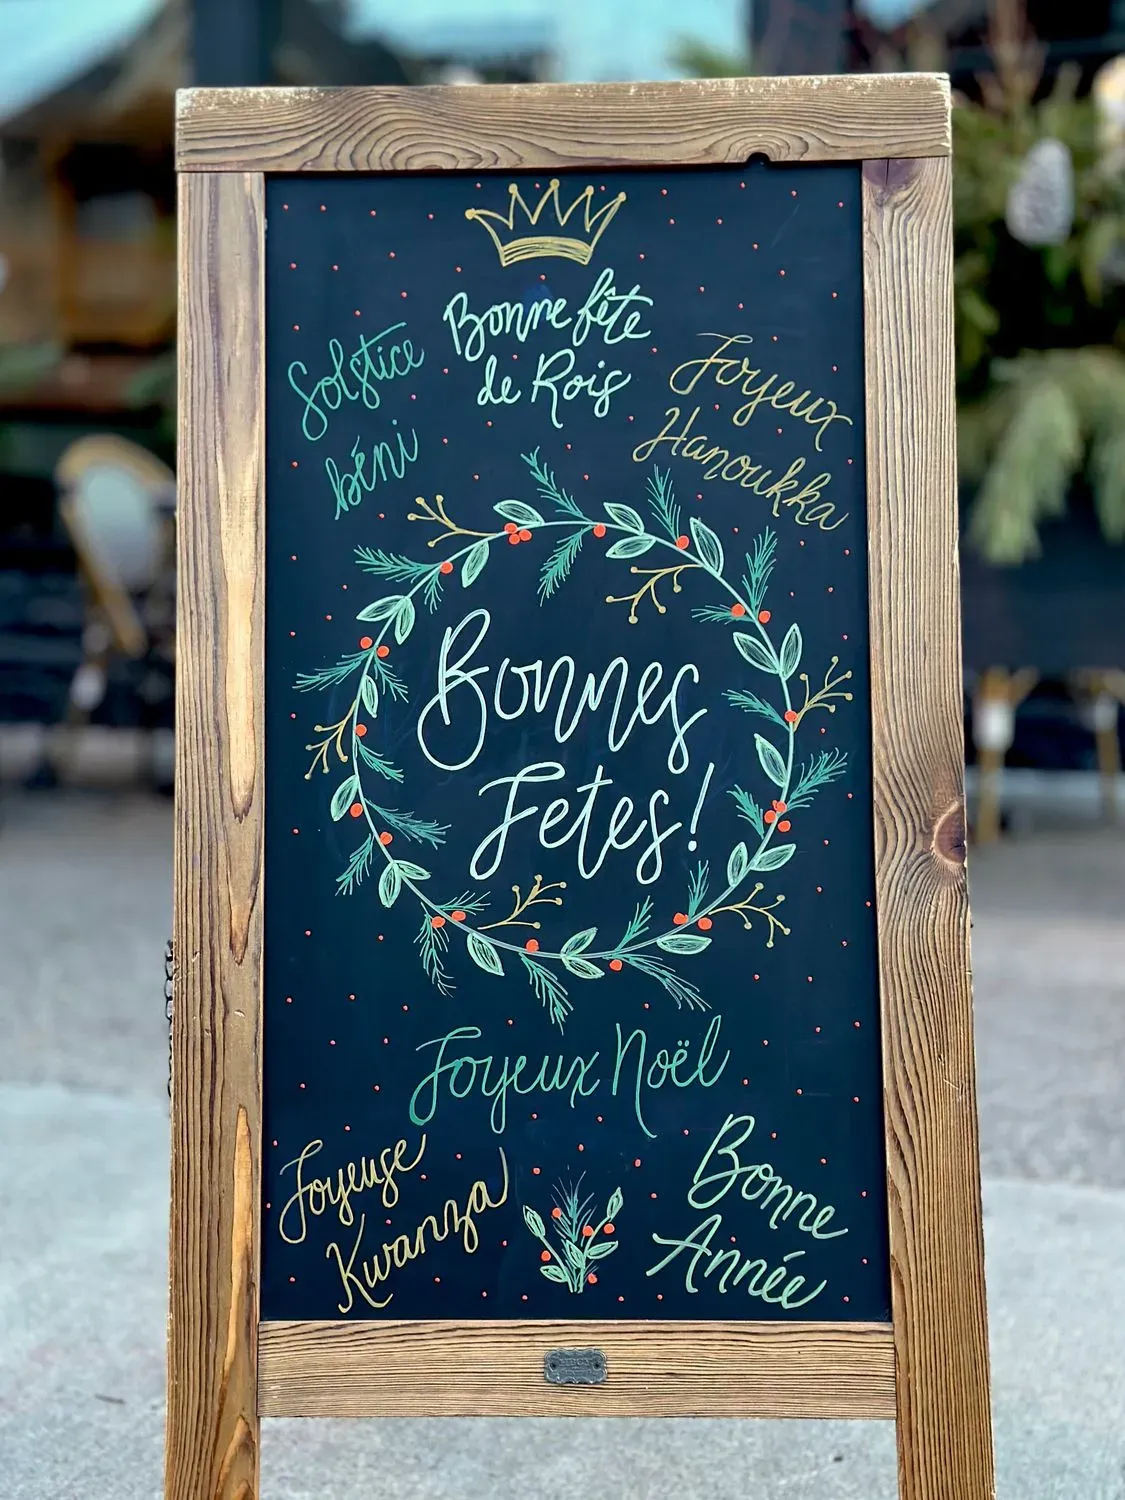 Bonne fête
de Rois
Solstice
béni
Joyeux
Hanoukka
Bonnes
Fetes!
Joyeux Noël
Joyeuse
Kwanza
Bonne
Année